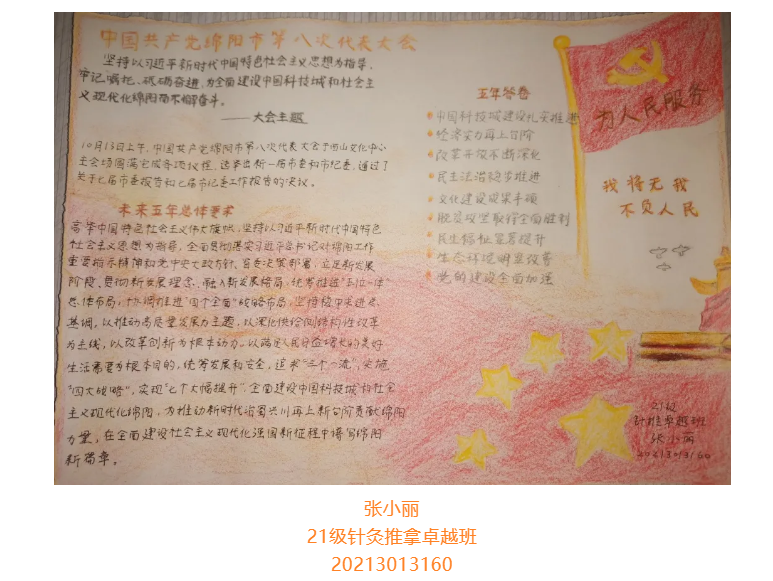 中国共产党绵阳市第八次代表大会
坚持以习近平新时代中国特色社会主义思想为指导，
牢记嘱托、砥砺奋进，为全面建设中国科技城和社会主
义现代化绵阳而不懈奋斗。
——大会主题
10月13日上午，中国共产党绵阳市第八次代表大会于西山文化中心
主会场圆满完成各项议程，选举出新一届市委和市纪委，通过了
关于七届市委报告和七届市纪委工作报告的决议。
未来五年总体要求
高举中国特色社会主义伟大旗帜，坚持以习近平新时代中国特色
社会主义思想为指导，全面贯彻落实习近平总书记对绵阳工作
重要指示精神和党中央大政方针、省委决策部署，立足新发展
阶段、贯彻新发展理念、融入新发展格局，统筹推进"五位一体"
总体布局，协调推进"四个全面"战略布局，坚持稳中求进总
基调，以推动高质量发展为主题，以深化供给侧结构性改革
为主线，以改革创新为根本动力，以满足人民日益增长的美好
生活需要为根本目的，统筹发展和安全，追求"三个一流"，实施
"四大战略"，实现"七个大幅提升"，全面建设中国科技城和社会
主义现代化绵阳，为推动新时代治蜀兴川再上新台阶贡献绵阳
力量，在全面建设社会主义现代化强国新征程中谱写绵阳
新篇章。
五年答卷
中国科技城建设扎实推进
经济实力再上台阶
改革开放不断深化
民主法治稳步推进
文化建设成果丰硕
脱贫攻坚取得全面胜利
民生福祉显著提升
生态环境明显改善
党的建设全面加强
为人民服务
我将无我
不负人民
21级
针推卓越班
张小丽
20213013160
张小丽
21级针灸推拿卓越班
20213013160